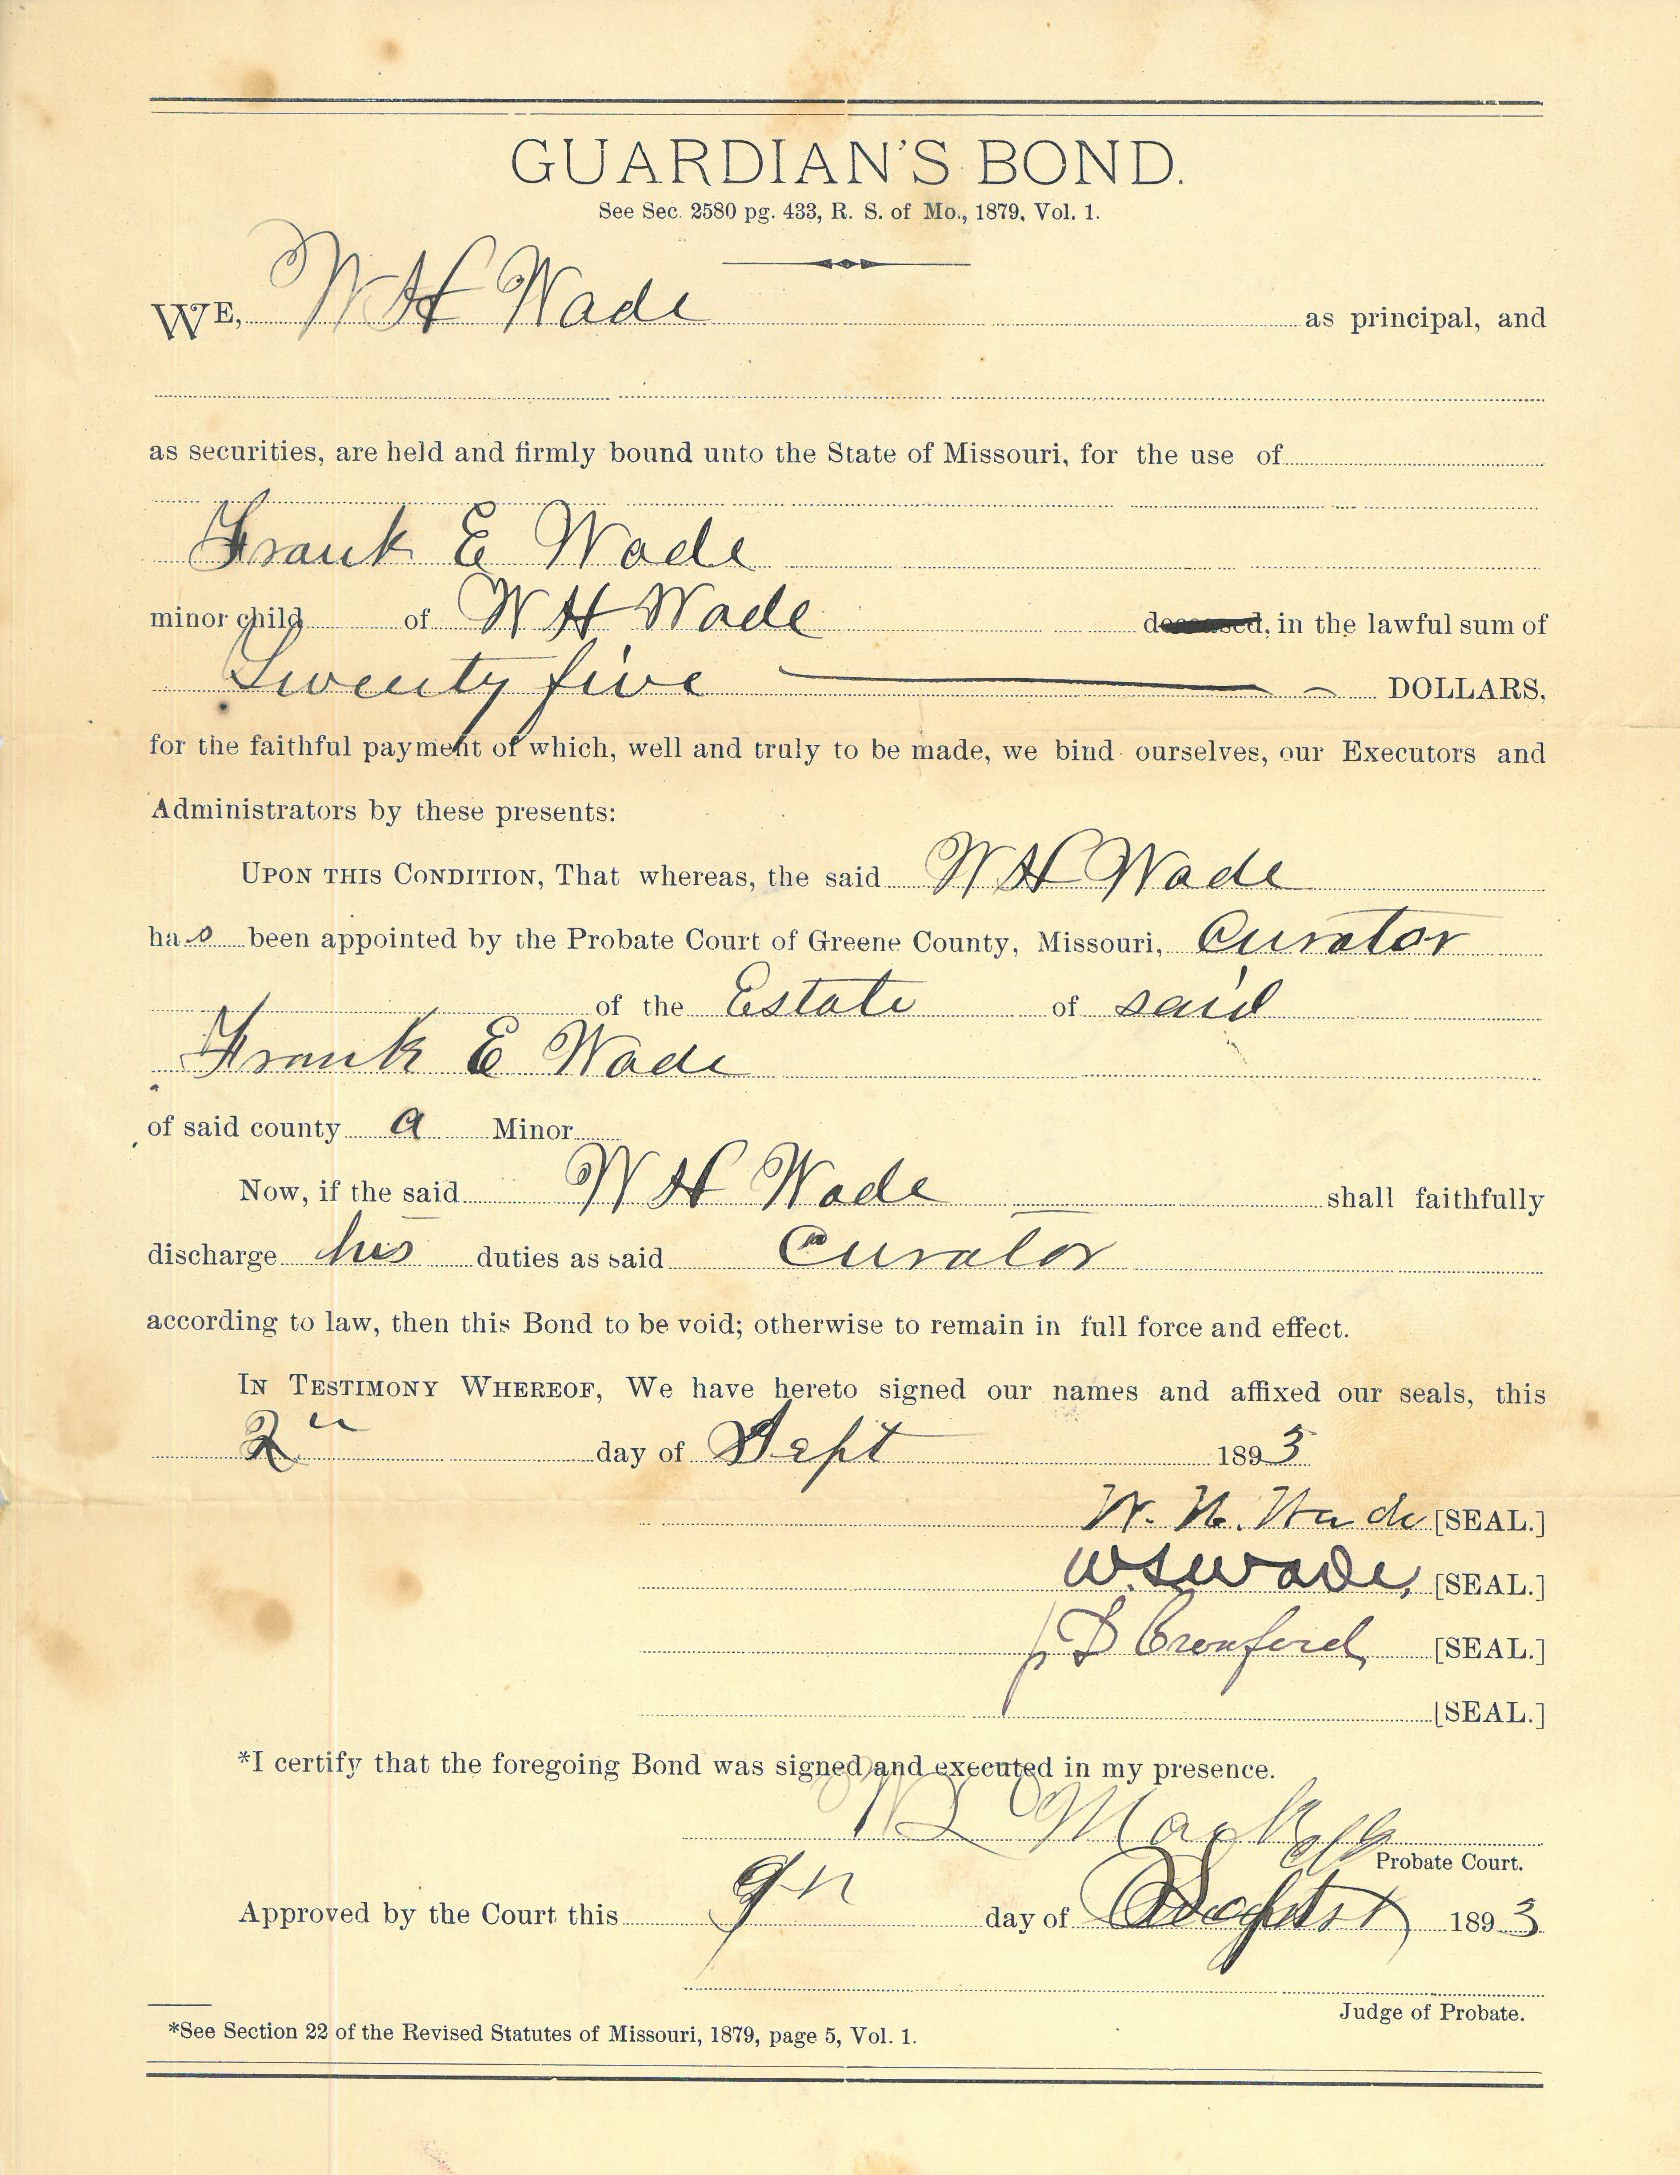 GUARDIAN'S BOND.
See Sec. 2580 pg. 433, R. S. of Mo., 1879, Vol. 1.
WE, W H Wade as principal, and
as securities, are held and firmly bound unto the State of Missouri, for the use of
Frank E Wade
minor child of W H Wade deceased, in the lawful sum of
Twenty five DOLLARS,
for the faithful payment of which, well and truly to be made, we bind ourselves, our Executors and
Administrators by these presents:
UPON THIS CONDITION, That whereas, the said W H Wade
has been appointed by the Probate Court of Greene County, Missouri, Curator
of the Estate of said
Frank E Wade
of said county a Minor
Now, if the said W H Wade shall faithfully
discharge his duties as said Curator
according to law, then this Bond to be void; otherwise to remain in full force and effect.
IN TESTIMONY WHEREOF, We have hereto signed our names and affixed our seals, this
2" day of Sept 1893
W. H. Wade [SEAL.]
W. S Wade, [SEAL.]
J D Crenford [SEAL.]
[SEAL.]
*I certify that the foregoing Bond was signed and executed in my presence.
Probate Court.
Approved by the Court this 9th day of Sept 1893
Judge of Probate.
*See Section 22 of the Revised Statutes of Missouri, 1879, page 5, Vol. 1.